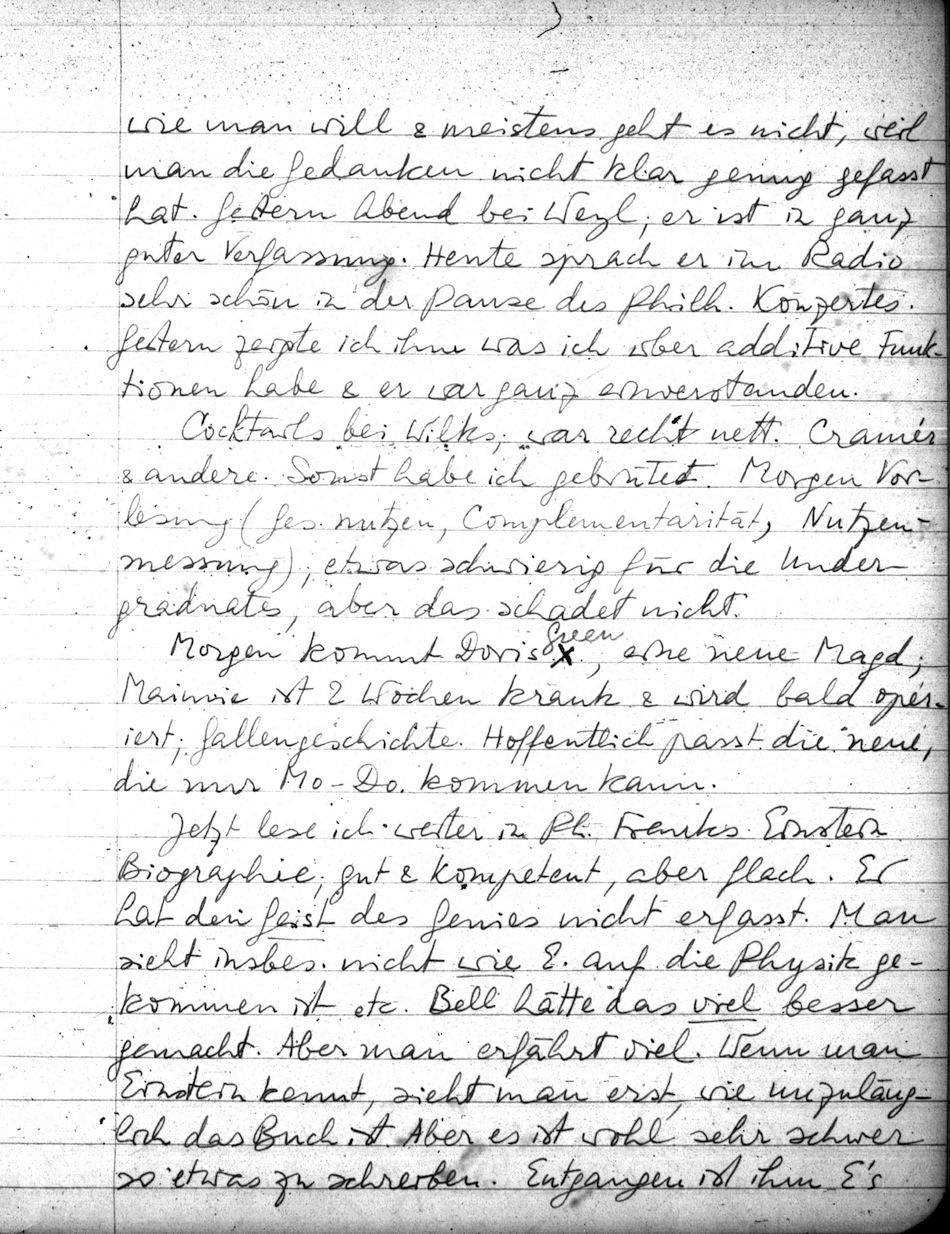 wie man will & meistens geht es nicht, weil
man die Gedanken nicht klar genug gefasst
hat. Gestern Abend bei Weyl; er ist in ganz
guter Verfassung. Heute sprach er im Radio
sehr schön in der Pause des Philh. Konzertes.
Gestern zeigte ich ihm was ich über additive Funk-
tionen habe & er war ganz einverstanden.
Cocktails bei Wilks; war recht nett. Cramér
& andere. Sonst habe ich gebrütet. Morgen Vor-
lesung (Ges. nutzen, Complementarität, Nutzen-
messung), etwas schwierig für die Under-
graduates, aber das schadet nicht.
Green
Morgen kommt Doris X., eine neue Magd;
Maimie ist 2 Wochen krank & wird bald oper-
iert; Gallengeschichte. Hoffentlich passt die neue,
die nur Mo-Do. kommen kann.
Jetzt lese ich weiter in Ph. Franks Einstein
Biographie; gut & kompetent, aber flach. Er
hat den Geist des Genies nicht erfasst. Man
sieht insbes. nicht wie E. auf die Physik ge-
kommen ist etc. Bell hätte das viel besser
gemacht. Aber man erfährt viel. Wenn man
Einstein kennt, sieht man erst, wie unzuläng-
lich das Buch ist. Aber es ist wohl sehr schwer
so etwas zu schreiben. Entgangen ist ihm E's